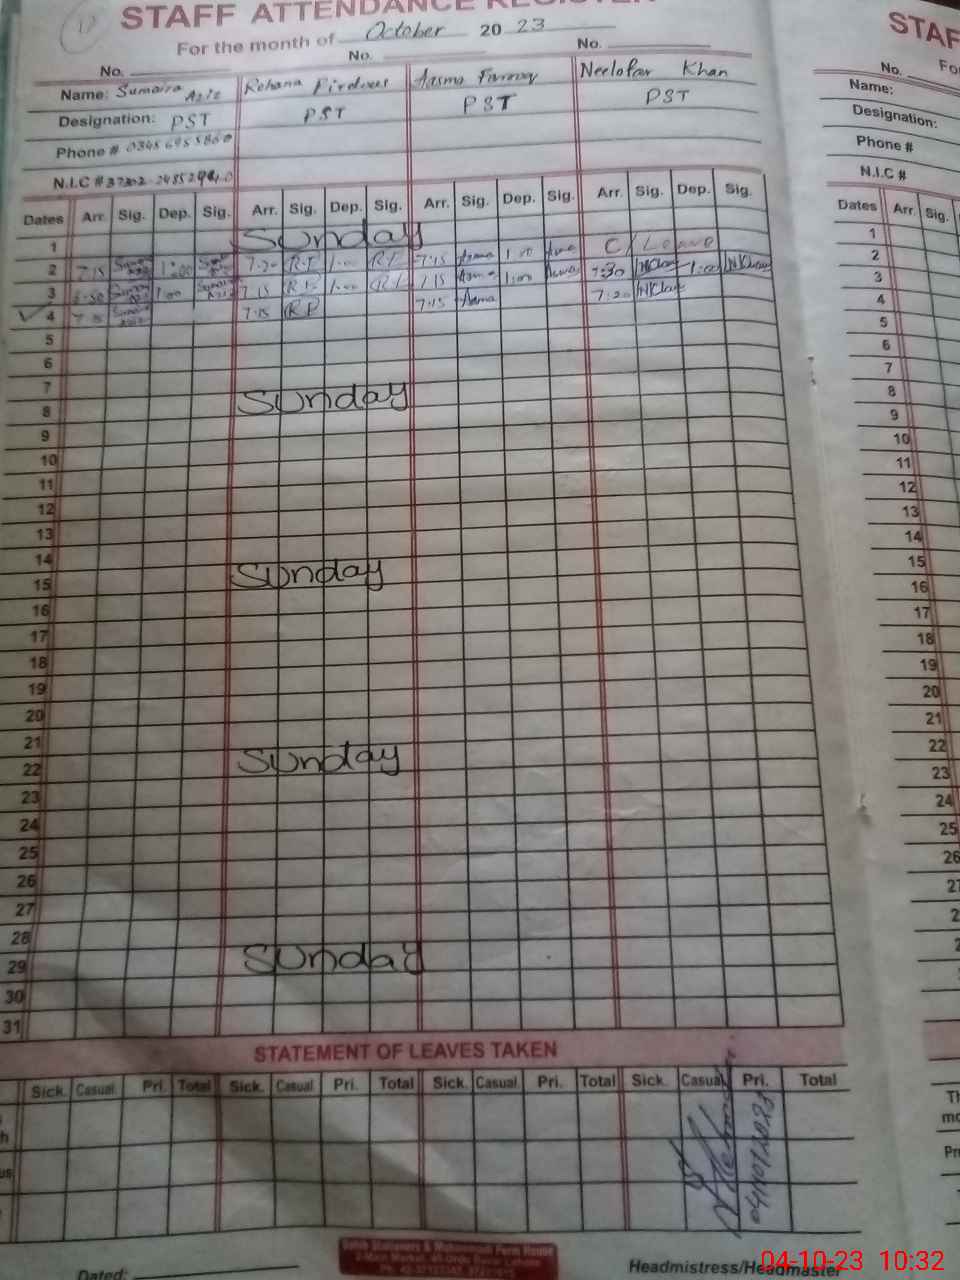 STAFF ATTENDANCE REGISTER
For the month of October 20 23
No. No. No.
Name: Sumaira Aziz Rehana Firdous Aasma Farooq Neelofar Khan
Designation: PST PST PST PST
Phone # 0345
N.I.C #
Dates Arr. Sig. Dep. Sig. Arr. Sig. Dep. Sig. Arr. Sig. Dep. Sig. Arr. Sig. Dep. Sig.
1 Sunday
2 7:15 1:00 7:20 R.F 1:00 R.F 7:15 Asma 1:00 Asma C/Leave
3 6:50 1:00 7:15 R.F 1:00 R.F 7:15 Asma 1:00 Asma 7:30 NKhan 1:00 NKhan
4 7:15 7:15 RF 7:15 Asma 7:20 NKhan
5
6
7
8 Sunday
9
10
11
12
13
14
15 Sunday
16
17
18
19
20
21
22 Sunday
23
24
25
26
27
28
29 Sunday
30
31
STATEMENT OF LEAVES TAKEN
Sick. Casual Pri. Total Sick. Casual Pri. Total Sick. Casual Pri. Total Sick. Casual Pri. Total
Dated: Headmistress/Headmaster
04-10-23 10:32
STAF
Fo
No.
Name:
Designation:
Phone #
N.I.C #
Dates Arr. Sig.
1
2
3
4
5
6
7
8
9
10
11
12
13
14
15
16
17
18
19
20
21
22
23
24
25
26